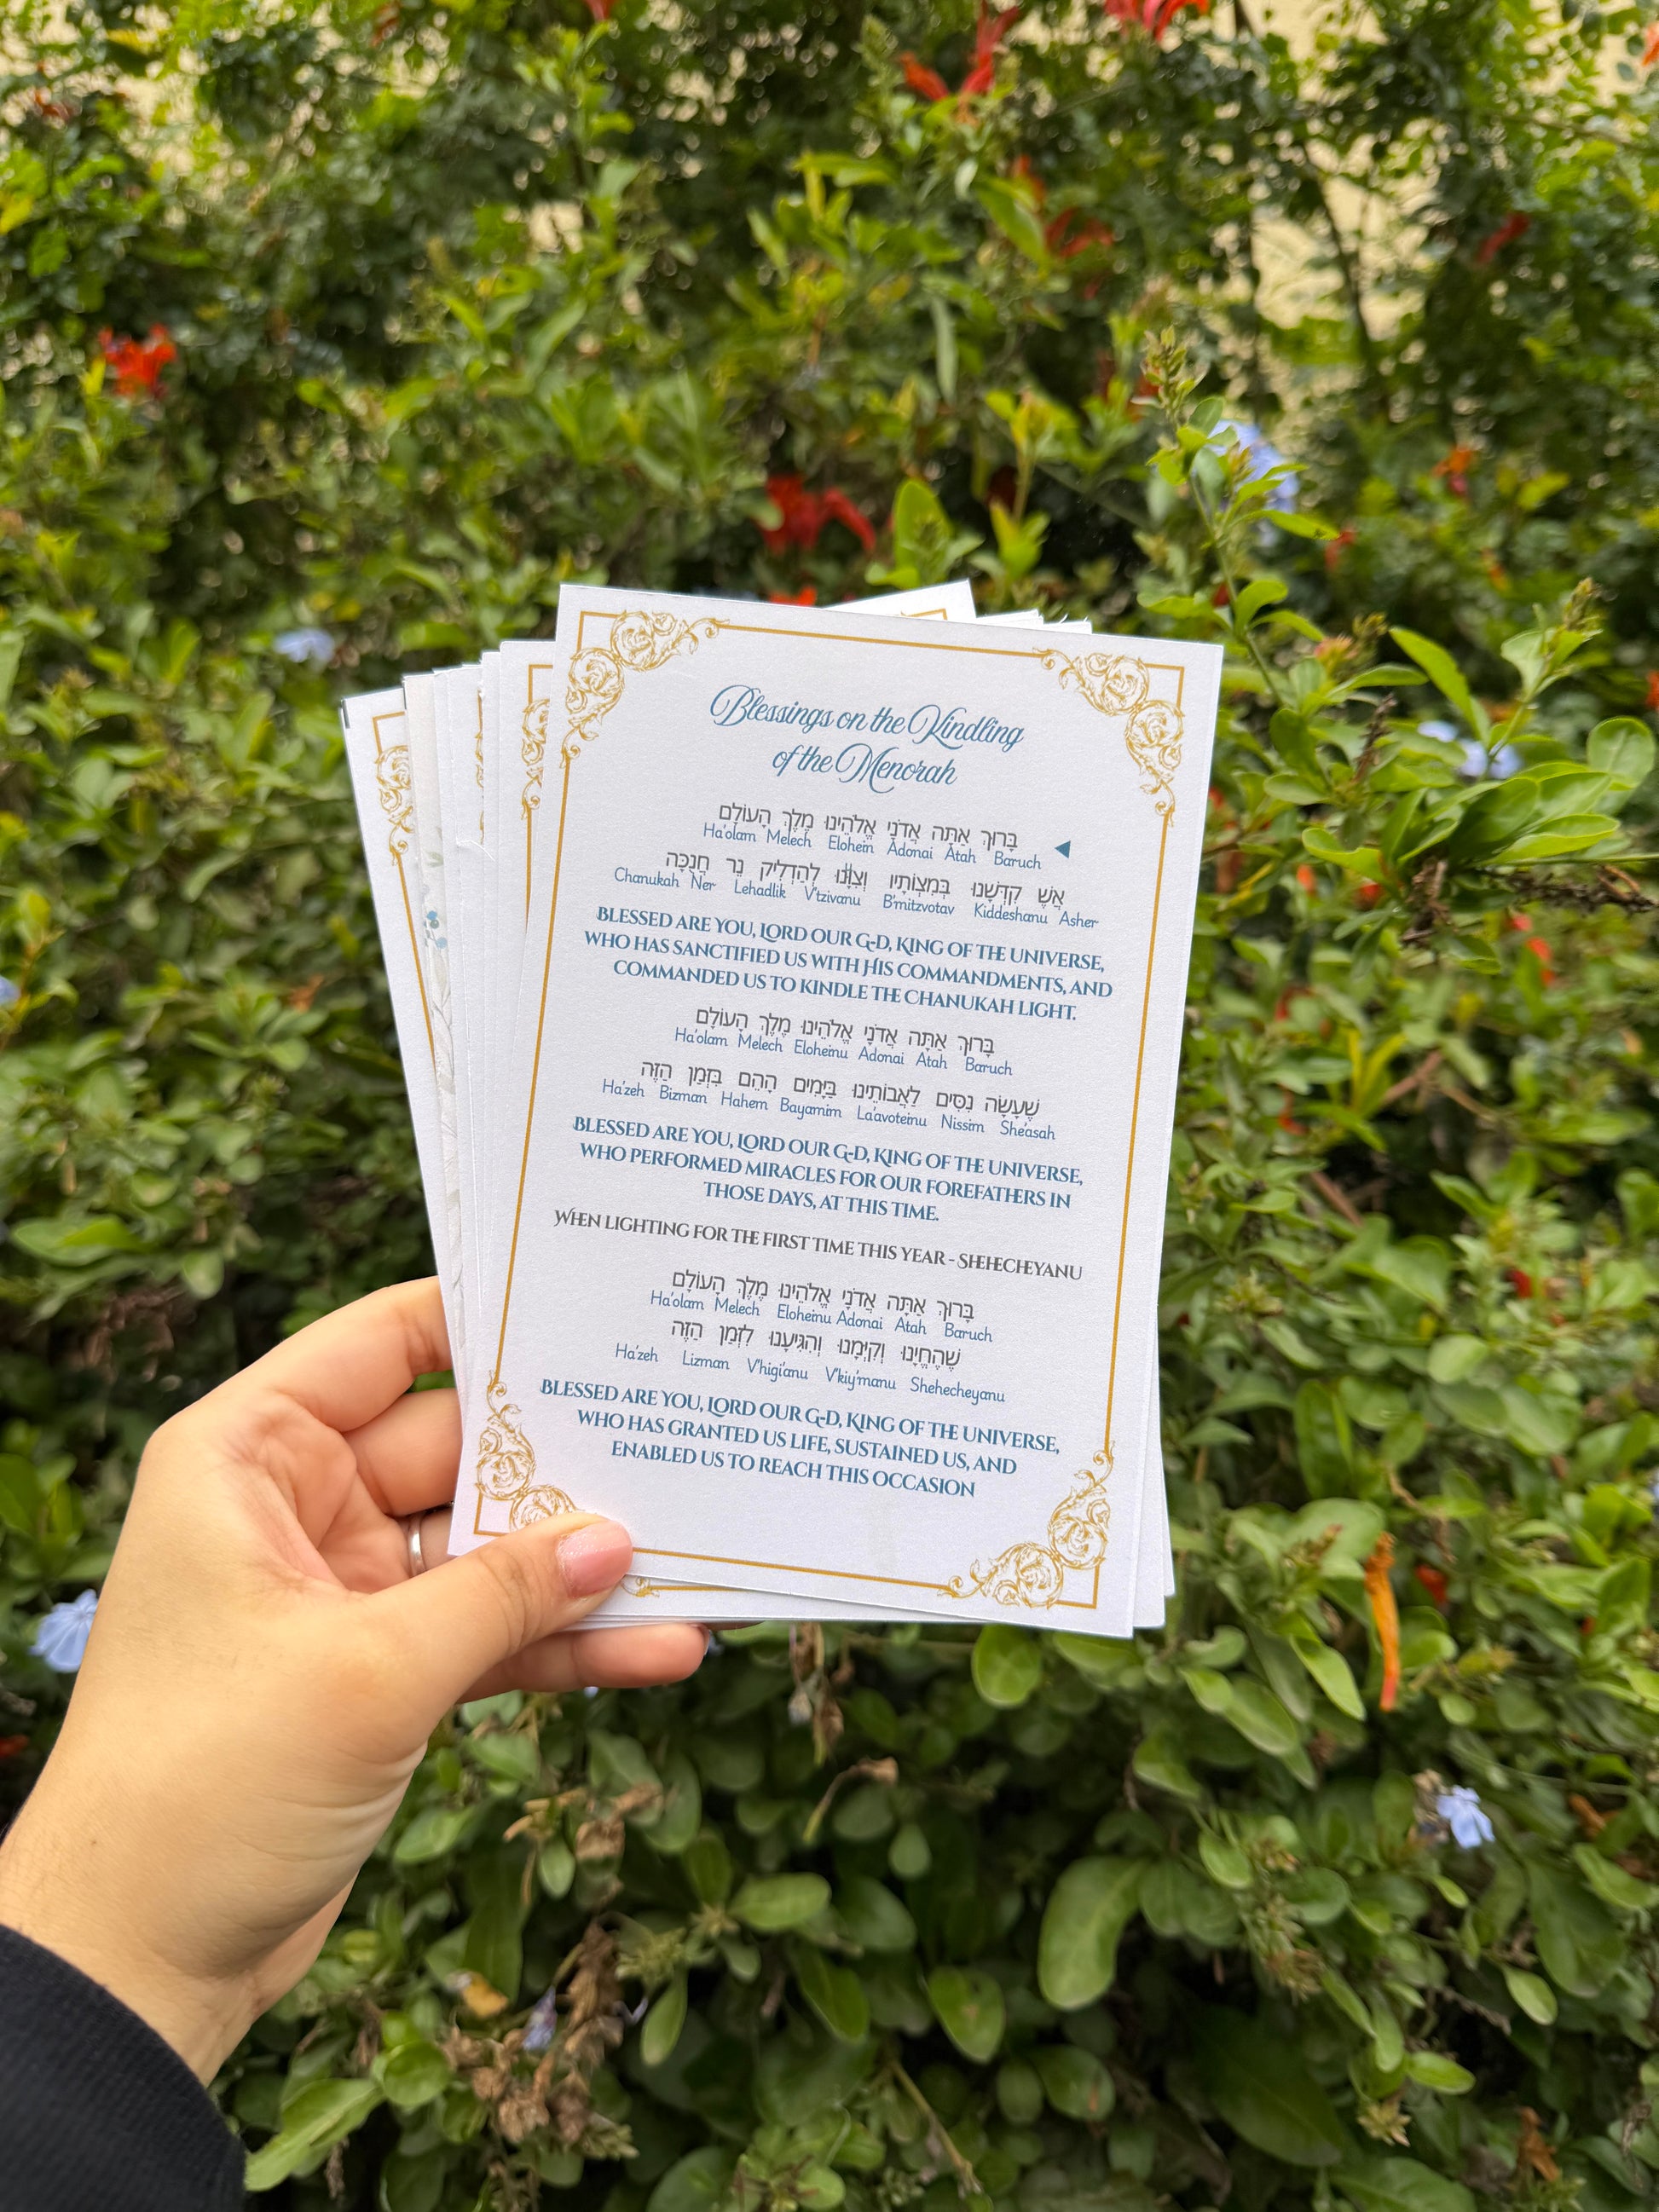 Blessings on the Kindling
of the Menorah
בָּרוּךְ אַתָּה אֲדֹנָי אֱלֹהֵינוּ מֶלֶךְ הָעוֹלָם
Ha'olam Melech Elohein Adonai Atah Baruch
אֲשֶׁ קִדְּשָׁנוּ בְּמִצְוֹתָיו וְצִוָּנוּ לְהַדְלִיק נֵר חֲנֻכָּה
Chanukah Ner Lehadlik V'tzivanu B'mitzvotav Kiddeshanu Asher
BLESSED ARE YOU, LORD OUR G-D, KING OF THE UNIVERSE,
WHO HAS SANCTIFIED US WITH HIS COMMANDMENTS, AND
COMMANDED US TO KINDLE THE CHANUKAH LIGHT.
בָּרוּךְ אַתָּה אֲדֹנָי אֱלֹהֵינוּ מֶלֶךְ הָעוֹלָם
Ha'olam Melech Eloheinu Adonai Atah Baruch
שֶׁעָשָׂה נִסִּים לַאֲבוֹתֵינוּ בַּיָּמִים הָהֵם בִּזְּמַן הַזֶּה
Ha'zeh Bizman Hahem Bayamim La'avoteinu Nissim She'asah
BLESSED ARE YOU, LORD OUR G-D, KING OF THE UNIVERSE,
WHO PERFORMED MIRACLES FOR OUR FOREFATHERS IN
THOSE DAYS, AT THIS TIME.
WHEN LIGHTING FOR THE FIRST TIME THIS YEAR - SHEHECHEYANU
בָּרוּךְ אַתָּה אֲדֹנָי אֱלֹהֵינוּ מֶלֶךְ הָעוֹלָם
Ha'olam Melech Eloheinu Adonai Atah Baruch
שֶׁהֶחֱיָנוּ וְקִיְּמָנוּ וְהִגִּיעָנוּ לִזְּמַן הַזֶּה
Ha'zeh Lizman V'higi'anu V'kiy'manu Shehecheyanu
BLESSED ARE YOU, LORD OUR G-D, KING OF THE UNIVERSE,
WHO HAS GRANTED US LIFE, SUSTAINED US, AND
ENABLED US TO REACH THIS OCCASION